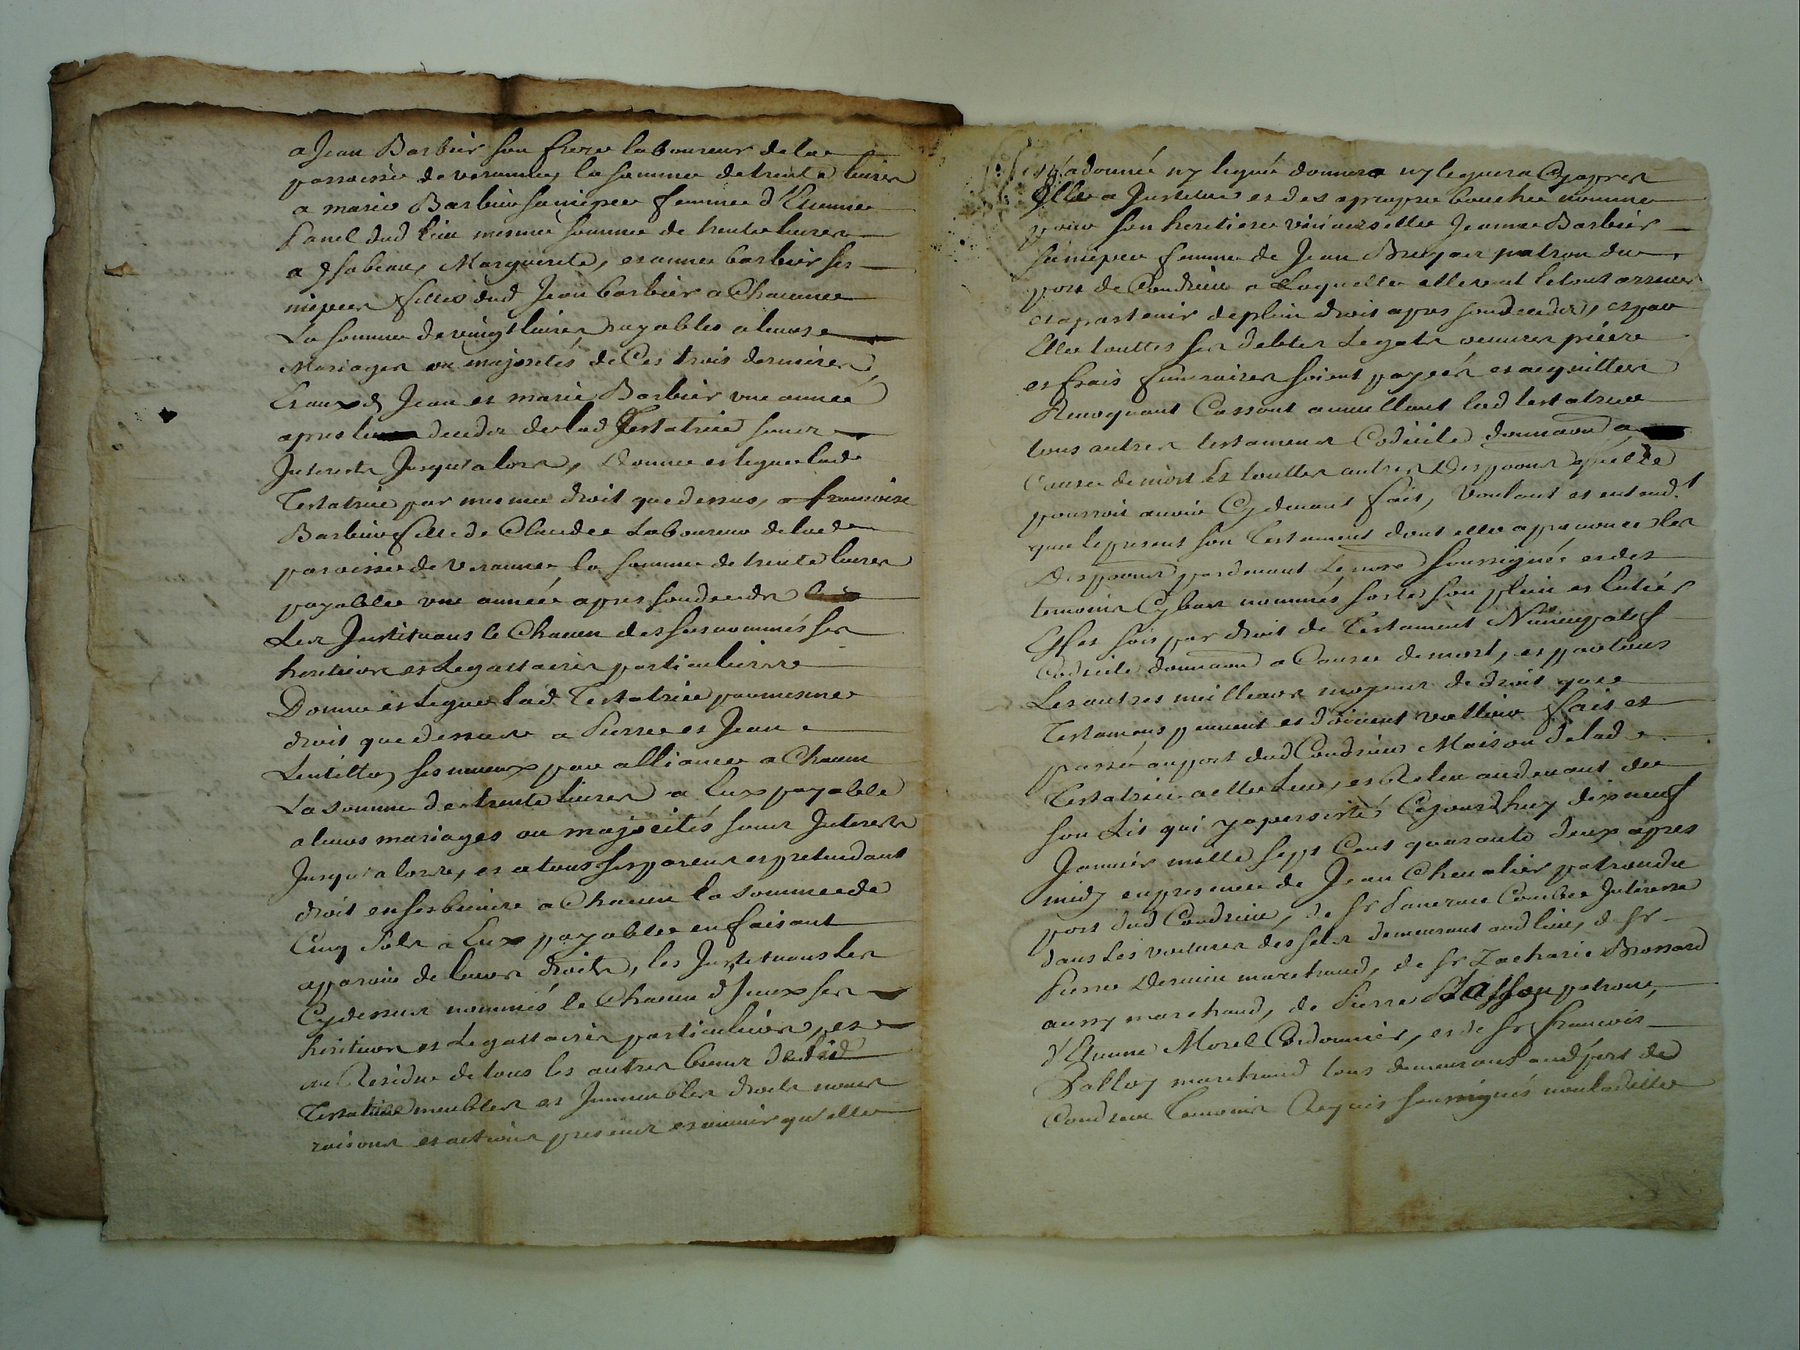 a Jean Barbier son frere laboureur de lad
parroisse de veranne, la somme de trente livres
a marie Barbier sa niepce femme d'Etienne
Panel dud lieu mesme somme de trente livres
a ysabeau, Marguerite, et anne barbier ses
niepces filles dud Jean barbier a Chacune
La somme de vingt livres payables a leurs
Mariages ou majorités de Ces trois dernieres,
Et auxd Jean et marie Barbier une année
apres le deceder de lad Testatrice sans
Interests Jusqu'alors, Donne et legue lade
Testatrice par mesme droit que dessus, a francoise
Barbier fille de Claude Laboureur de lade
paroisse de veranne la somme de trente livres
payable une année apres sond deceder
Les Instituans le Chacun des susnommés ses
heritiers et Legattaires particuliers
Donne et Legue lad Testatrice par mesme
droit que dessus a Pierre et Jean
Lentillo, ses neveux par alliance a Chacun
La somme de trente livres a Eux payable
a leurs mariages ou majorités sans Interests
Jusqu'alors, et a tous ses parens et pretendant
droit en ses biens a Chacun la somme de
Cinq sols a Eux payable en faisant
apparoir de leurs droits, les Instituans Les
Cydessus nommés le Chacun d'Iceux ses
heritiers et Legattaires particuliers, et
au Residue de tous les autres biens de lad
Testatrice meubles et Immeubles droits noms
raisons et actions presens et avenir qu'elle
n'a donnée ny legué donnera ny leguera Cyapres
Elle a Institué et de sa propre bouche nommé
pour son heritiere universelle Jeanne Barbier
sa niepce femme de Jean patron du
port de Condrieu a Laquelle elle veut le tout arriver
et apartenir de plein droit apres sond deceder, et par
Elle touttes ses debtes Legats oeuvres pie
et frais funeraires soient payées et acquittées
Revoquant Cassant annullant lad testatrice
tous autres testamens Codicile donnaon a
Cause de mort Et touttes autres Dispoons quelle
pourroit avoir Cydevant fait, voulant et entend.t
que le present son Testament dont elle a prononcé les
Dispoons pardevant Le nore soussigné et des
temoins Cybas nommés sorte son plein et Entier
Effet soit par droit de Testament Nuncupatif
Codicile donnaon a Cause de mort, et par tous
Les autres meilleurs moyens de droit que
Testamens peuvent et doivent valloir fait et
passé au port dud Condrieu Maison de lad
Testatrice a elle Leue, et Releu audevant de
son Lit qui y a persisté Cejourd'huy dixneuf
Janvier mille sept Cent quarante deux apres
midy en presence de Jean Chevalier patron du
port dud Condrieu, de Sr Combe Interessé
dans Les voitures des sels demeurant aud lieu, de Sr
Pierre marchand, de Sr Zacharie Brossard
aussy marchand, de Pierre patron,
d'Etienne Morel Cordonnier, et de Sr francois
marchand tous demeurans aud port de
Condrieu temoins Requis soussignés non lad